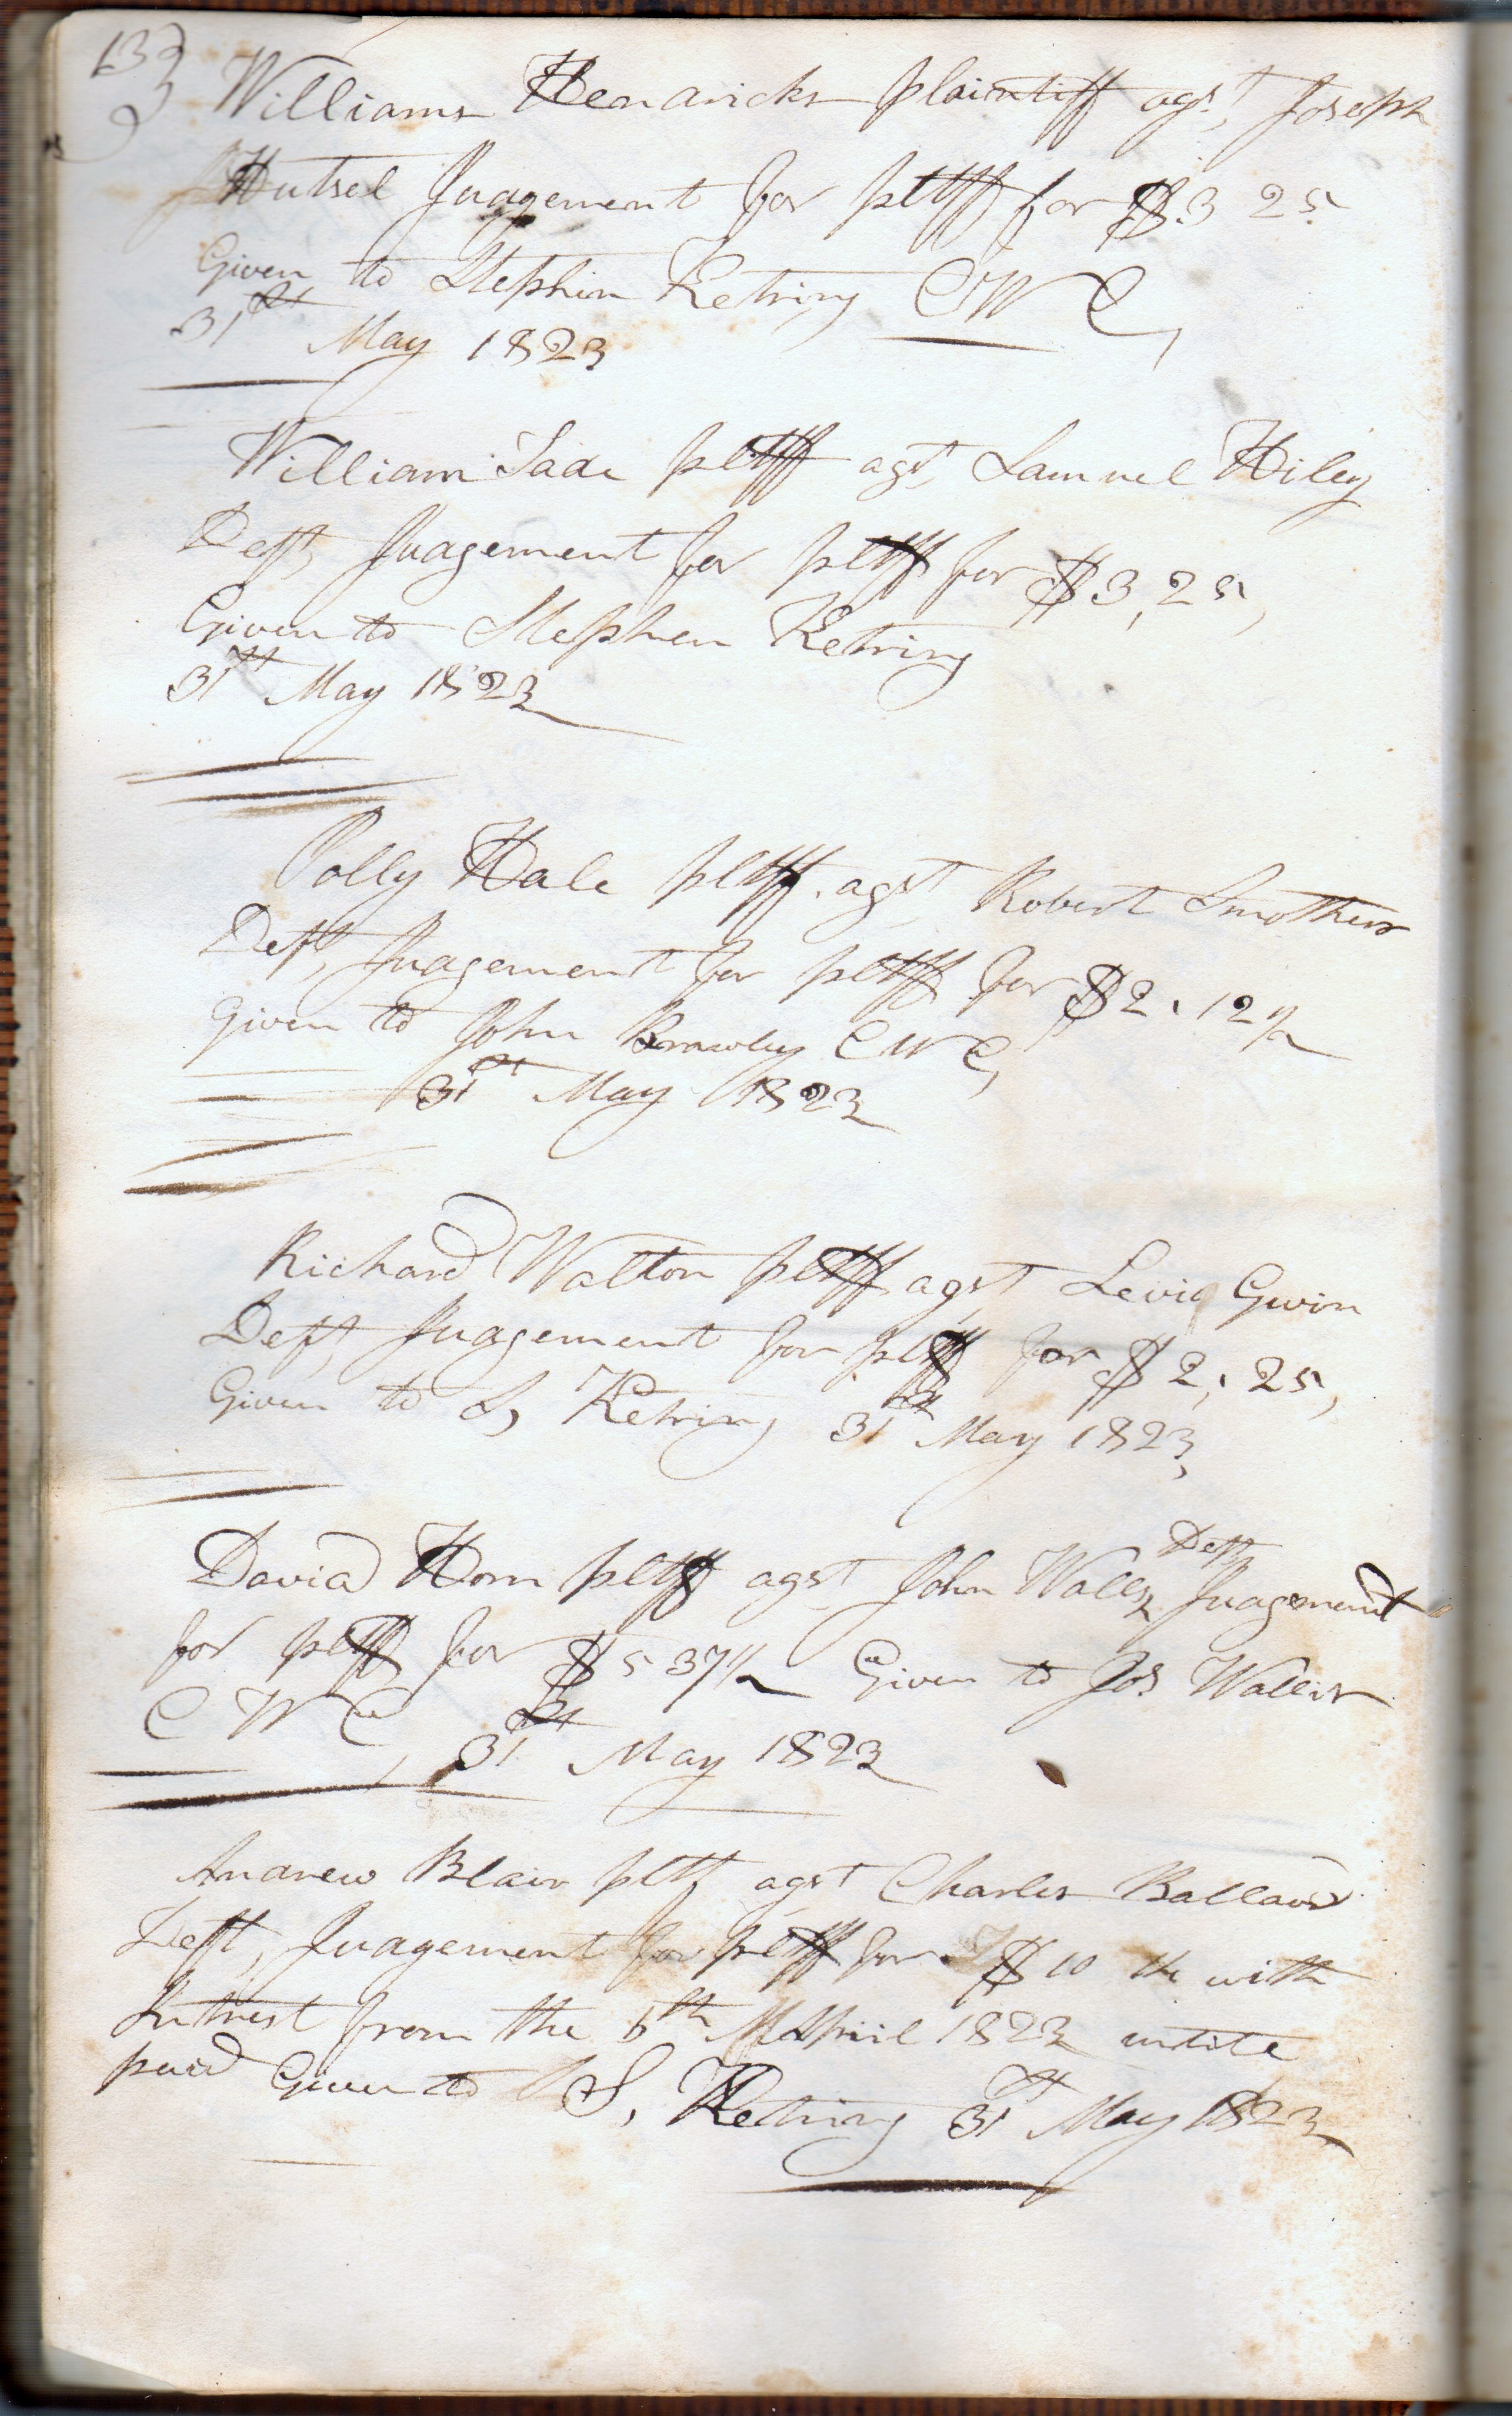 133
Williams Hendricks plaintiff agst Joseph
Hutsel Judgement for pltff for $3 25
Given to Stephen Ketring CWC,
31st May 1823
William Tade pltff agst Samuel Hiley
Deft, Judgement for pltff for $3,25,
Given to Stephen Ketring
31st May 1823
Polly Hale pltff. agst Robert Smothers
Deft, Judgement for pltff for $2.12½
Given to John Brawley CWC,
31st May 1823
Richard Walton pltff agst Levi Gwin
Deft Judgement for pltff for $2,25,
Given to S, Ketring 31st May 1823,
Deft
David Horn pltff agst John Wallis Judgement
for pltff for $5 37½ Given to Jos Wallis
CWC, 31st May 1823
Andrew Blair pltf agst Charles Ballard
Deft, Judgement for pltff for $10 with
Intrest from the 6th April 1823 untile
paid Given to S, Ketring 31st May 1823